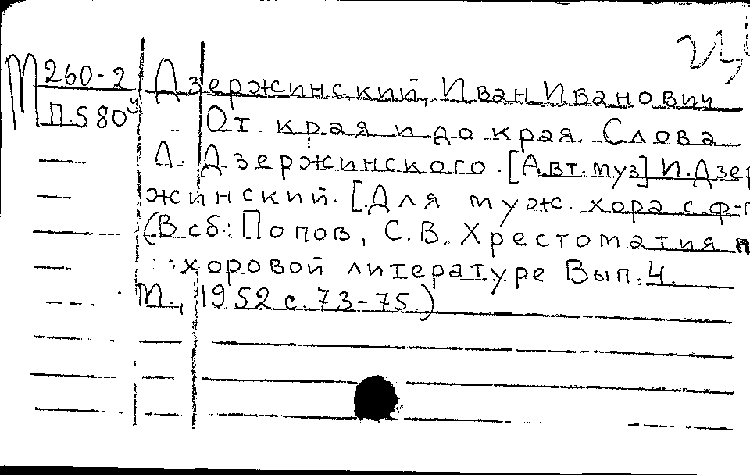 М 260-2 Дзержинский, Иван Иванович
П580у От края и до края. Слова
Л. Дзержинского. [Авт. муз] И. Дзер
жинский. [Для муж. хора с ф-п
(В сб.: Попов, С.В. Хрестоматия п
хоровой литературе Вып. 4.
М., 1952 с. 73-75.)